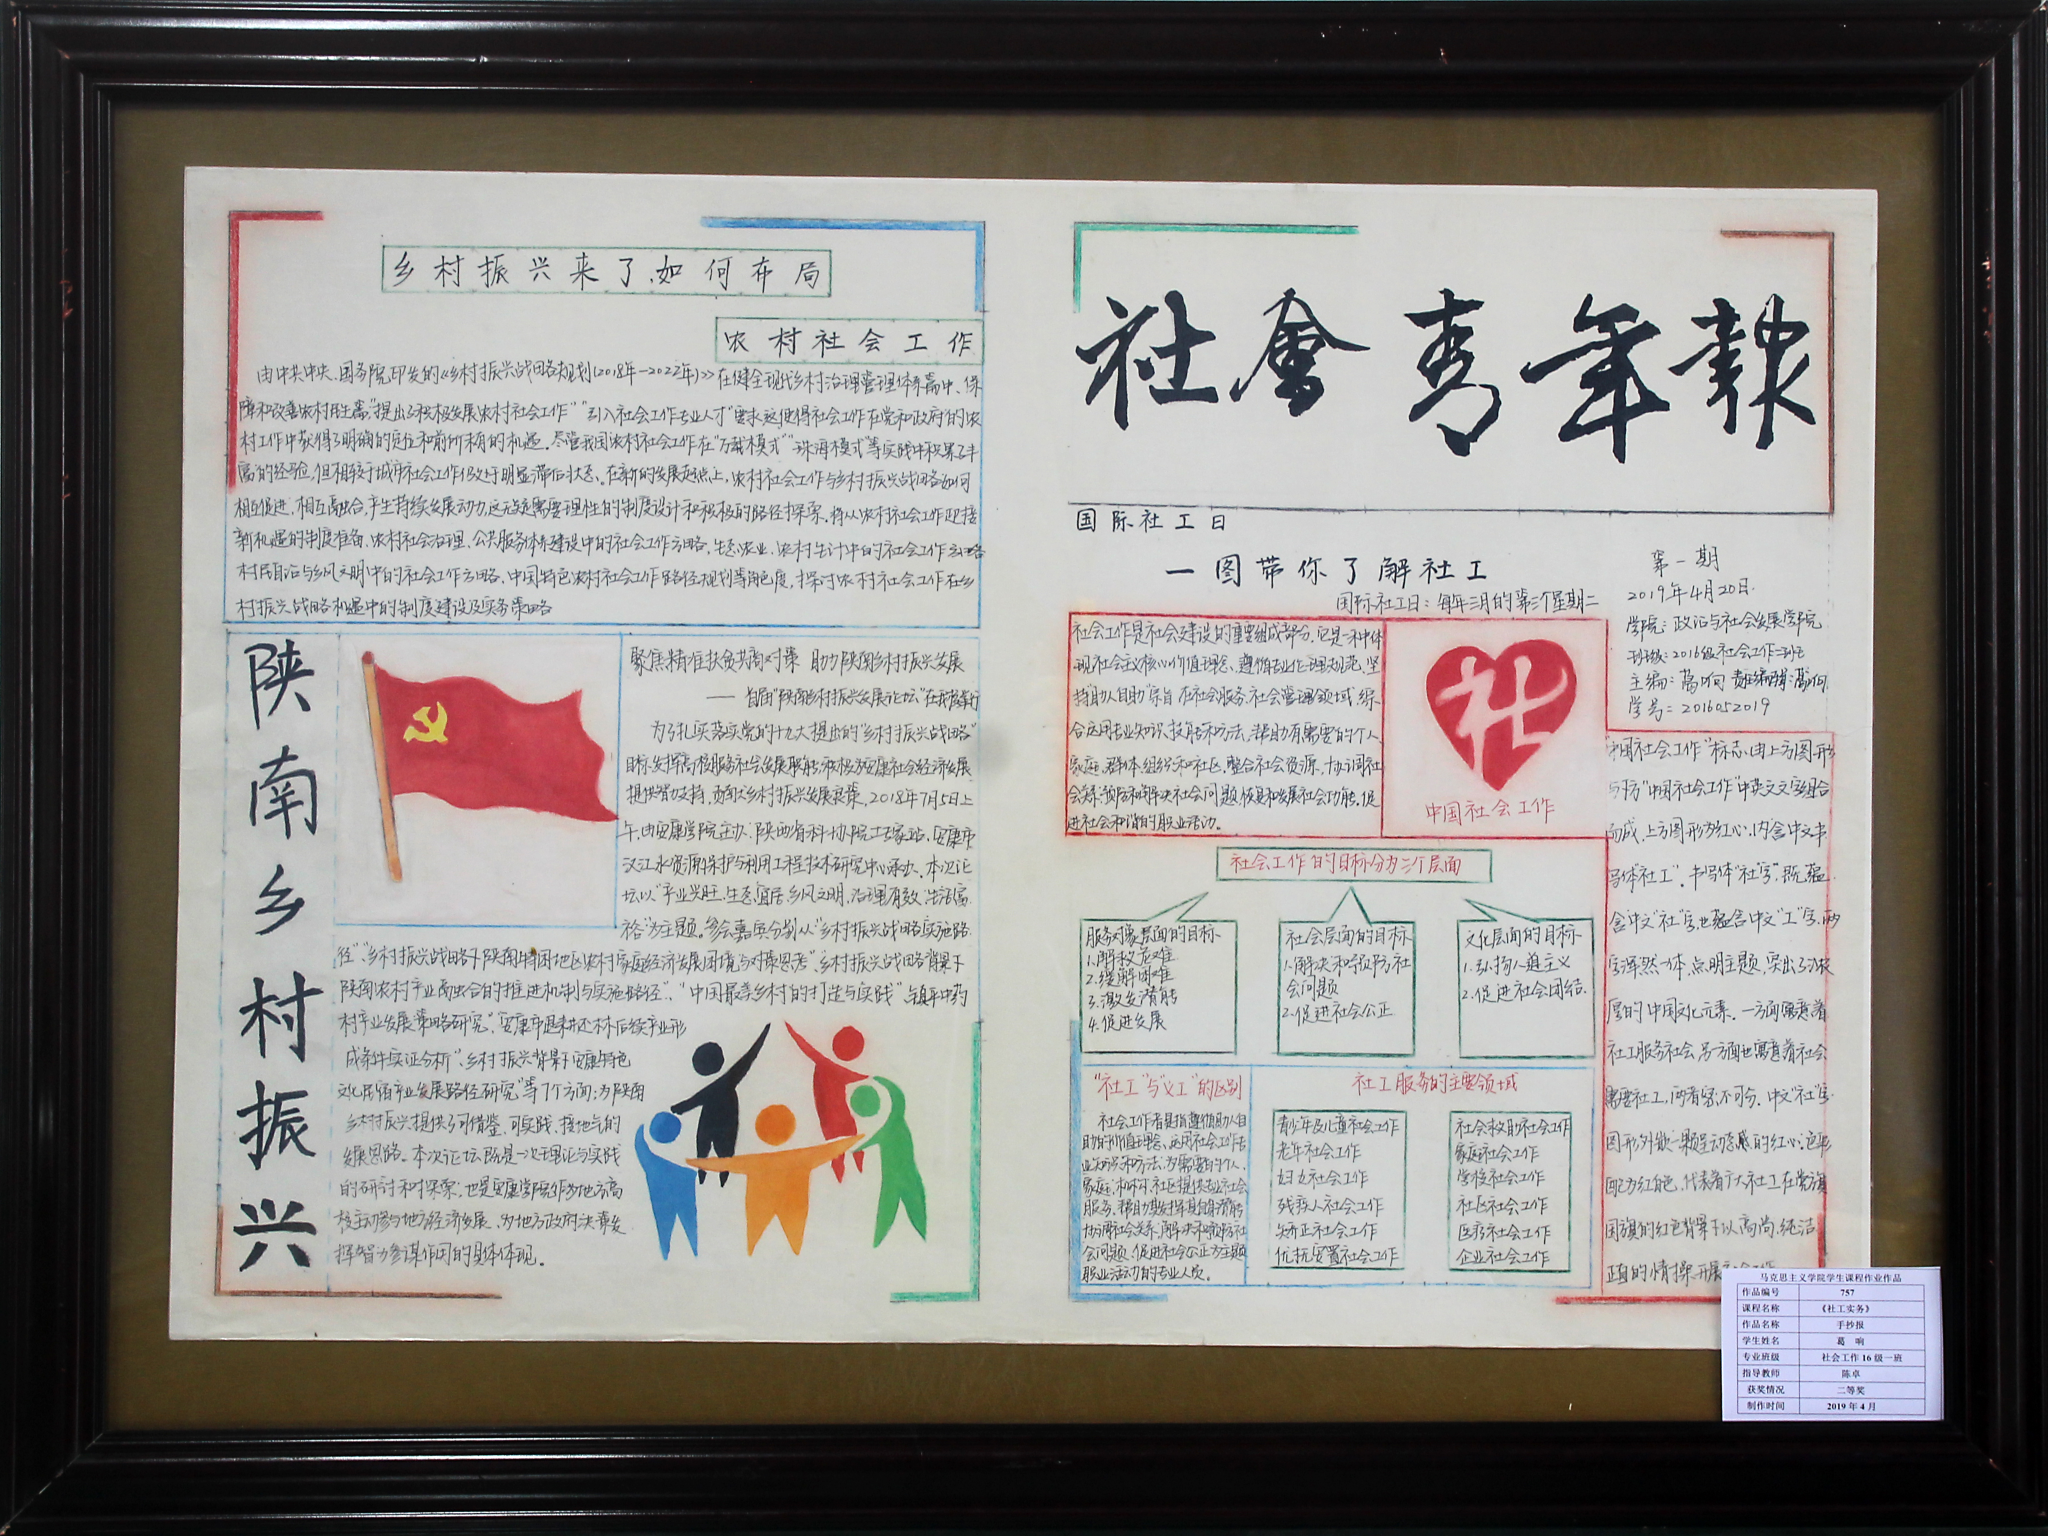 乡村振兴来了,如何布局
农村社会工作
由中共中央、国务院印发的《乡村振兴战略规划(2018年—2022年)》在健全现代乡村治理管理体系篇中、保
障和改善农村民生篇"提出了积极发展农村社会工作""引入社会工作专业人才"要求这使得社会工作在党和政府的农
村工作中获得了明确的定位和前所未有的机遇。尽管我国农村社会工作在"万载模式""珠海模式"等实践中积累了丰
富的经验,但相较于城市社会工作仍处于明显滞后状态。在新的发展起点上,农村社会工作与乡村振兴战略如何
相互促进,相互融合,产生持续发展动力,这无疑需要理性的制度设计和积极的路径探索,将从农村社会工作迎接
新机遇的制度准备、农村社会治理、公共服务体系建设中的社会工作方略,生态农业、农村生计中的社会工作方略
村民自治与乡风文明中的社会工作方略、中国特色农村社会工作路径规划等角度,探讨农村社会工作在乡
村振兴战略机遇中的制度建设及实务策略
陕南乡村振兴
聚焦精准扶贫共商对策 助力陕南乡村振兴发展
——首届"陕南乡村振兴发展论坛"在我校举行
为了扎实落实党的十九大提出的"乡村振兴战略"
目标,发挥高校服务社会发展职能,积极为安康社会经济发展
提供智力支持,贡献乡村振兴发展良策,2018年7月5日上
午,由安康学院主办、陕西省科协院士专家站、安康市
汉江水资源保护与利用工程技术研究中心承办。本次论
坛以"产业兴旺、生态宜居、乡风文明、治理有效、生活富
裕"为主题。参会嘉宾分别从"乡村振兴战略实施路
径"、"乡村振兴战略下陕南特困地区农村家庭经济发展困境与对策思考""乡村振兴战略背景下
陕南农村产业高融合的推进机制与实施路径"、"中国最美乡村的打造与实践""镇平中药
村产业发展策略研究""安康市退耕还林后续产业形
成条件实证分析"、"乡村振兴背景下安康特色
文化民宿产业发展路径研究"等7个方面;为陕南
乡村振兴提供了可借鉴、可实践、接地气的
发展思路。本次论坛既是一次理论与实践
的研讨和探索,也是安康学院作为地方高
校主动参与地方经济发展、为地方政府决策发
挥智力参谋作用的具体体现。
社會青年報
国际社工日
一图带你了解社工
国际社工日:每年三月的第三个星期二
第一期
2019年4月20日
学院:政治与社会发展学院
班级:2016级社会工作一班
主编:葛响 责任编辑:葛响
学号:2016052019
社会工作是社会建设的重要组成部分,它是一种体
现社会主义核心价值理念、遵循专业伦理规范、坚
持"助人自助"宗旨,在社会服务、社会管理领域,综
合运用专业知识、技能和方法,帮助有需要的个人、
家庭、群体、组织和社区,整合社会资源,协调社
会关系,预防和解决社会问题,恢复和发展社会功能,促
进社会和谐的职业活动。
社工
中国社会工作
"中国社会工作"标志,由上方图形
与下方"中国社会工作"中英文文字组合
而成,上方图形为红心,内含中文书
写体"社工"。书写体"社"字,既蕴
含中文"社"字,也蕴含中文"工"字,两
字浑然一体,点明主题,突出了浓
厚的中国文化元素。一方面寓意着
社工服务社会,另方面也寓意着社会
需要社工,两者密不可分。中文"社"字
图形外嵌一颗呈动感的红心,色彩
配为红色,代表着广大社工在党旗
国旗的红色背景下以高尚、纯洁
正直的情操开展
社会工作的目标分为三个层面
服务对象层面的目标
1.解救危难
2.缓解困难
3.激发潜能
4.促进发展
社会层面的目标
1.解决和预防社
会问题
2.促进社会公正
文化层面的目标
1.弘扬人道主义
2.促进社会团结.
"社工"与"义工"的区别
社会工作者是指遵循助人自
助的价值理念、运用社会工作专
业知识和方法,为需要的个人、
家庭、和社区提供专业社会
服务,帮助其发挥自身潜能
协调社会关系,解决和预防社
会问题,促进社会公正为主题
职业活动的专业人员。
社工服务的主要领域
青少年及儿童社会工作
老年社会工作
妇女社会工作
残疾人社会工作
矫正社会工作
优抚安置社会工作
社会救助社会工作
家庭社会工作
学校社会工作
社区社会工作
医疗社会工作
企业社会工作
马克思主义学院学生课程作业作品
作品编号 757
课程名称 《社工实务》
作品名称 手抄报
学生姓名 葛 响
专业班级 社会工作16级一班
指导教师 陈卓
获奖情况 二等奖
制作时间 2019年4月